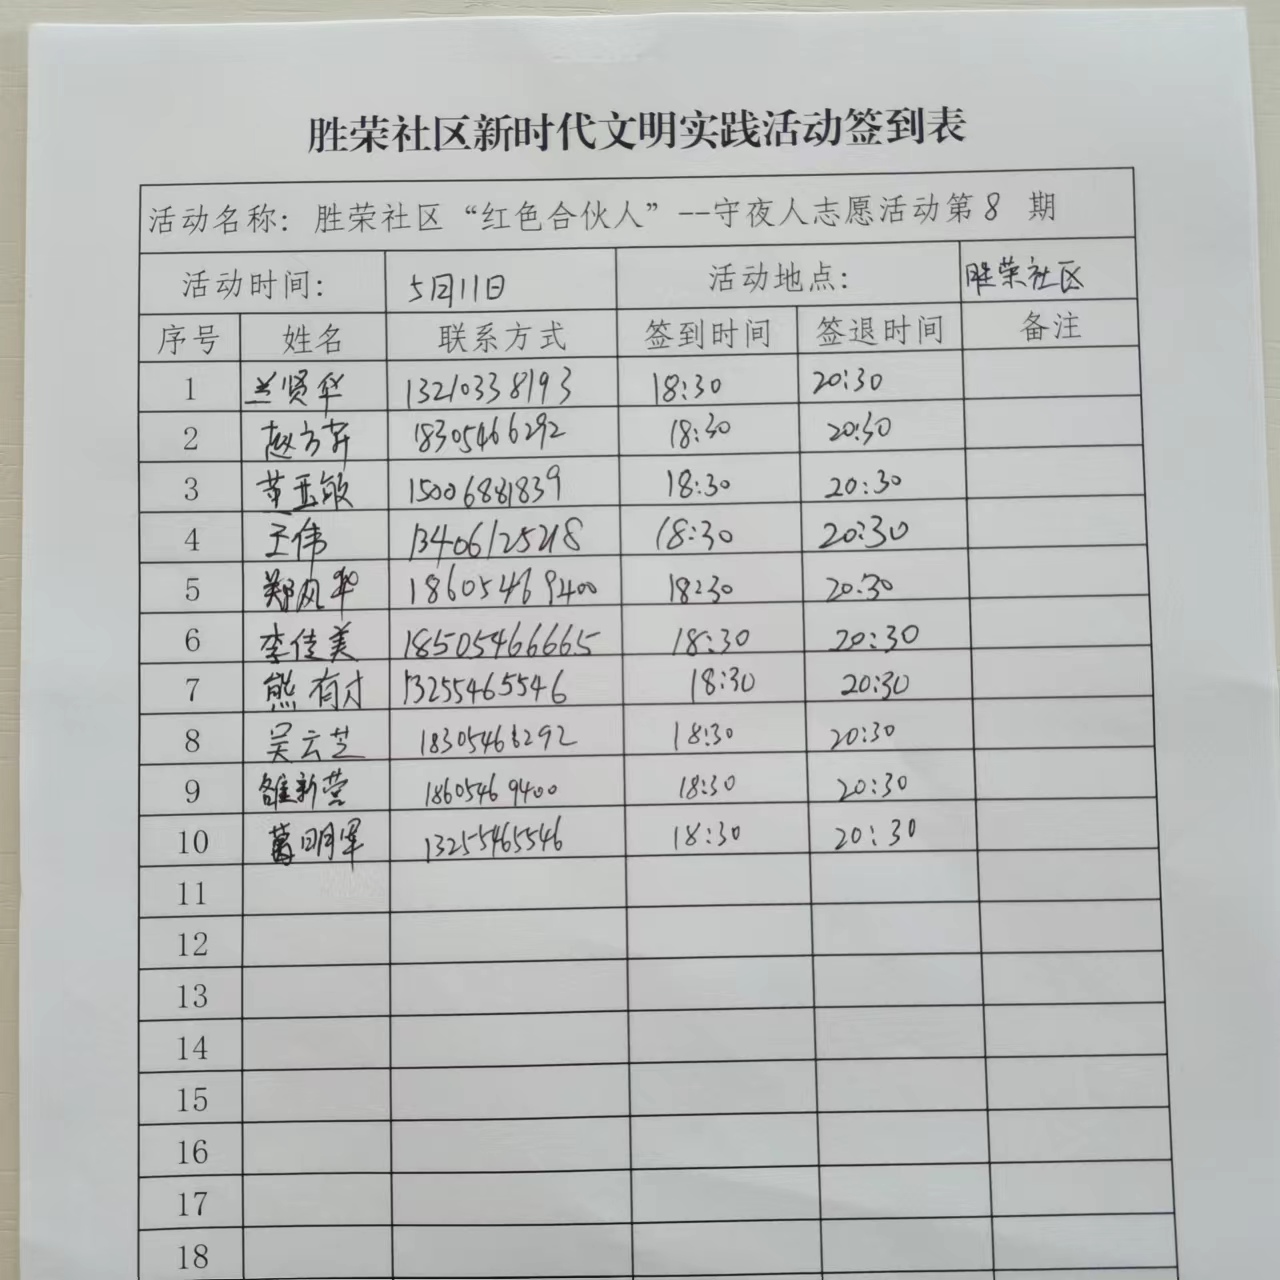 胜荣社区新时代文明实践活动签到表
活动名称：胜荣社区“红色合伙人”--守夜人志愿活动第8 期
活动时间： 5月11日 活动地点： 胜荣社区
序号 姓名 联系方式 签到时间 签退时间 备注
1 兰贤华 13210338193 18:30 20:30
2 赵方昇 18305466292 18:30 20:30
3 黄玉敏 15006881839 18:30 20:30
4 王伟 13406125218 18:30 20:30
5 郑风华 18605469400 18:30 20:30
6 李佳美 18505466665 18:30 20:30
7 熊有才 13255465546 18:30 20:30
8 吴云芝 18305466292 18:30 20:30
9 新营 18605469400 18:30 20:30
10 葛明军 13255465546 18:30 20:30
11
12
13
14
15
16
17
18